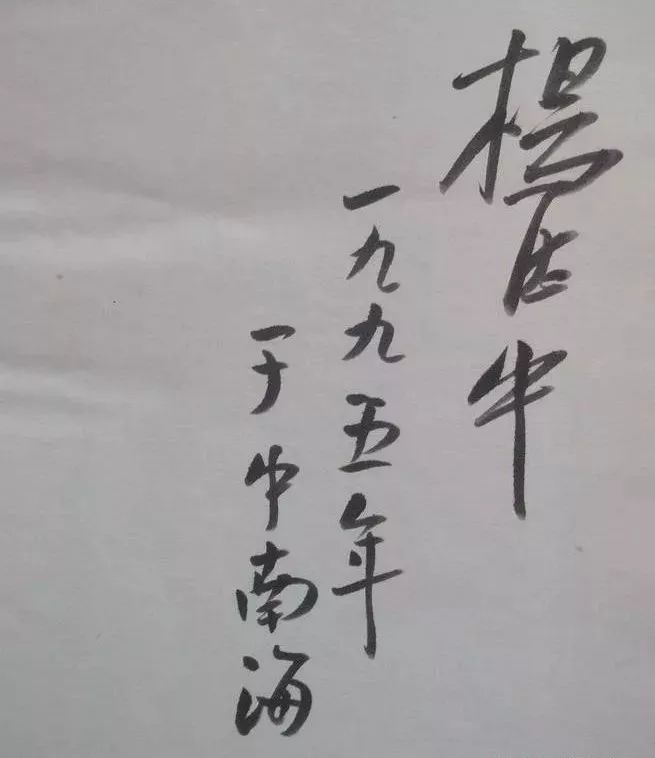 楊中
一九九五年
于中南海